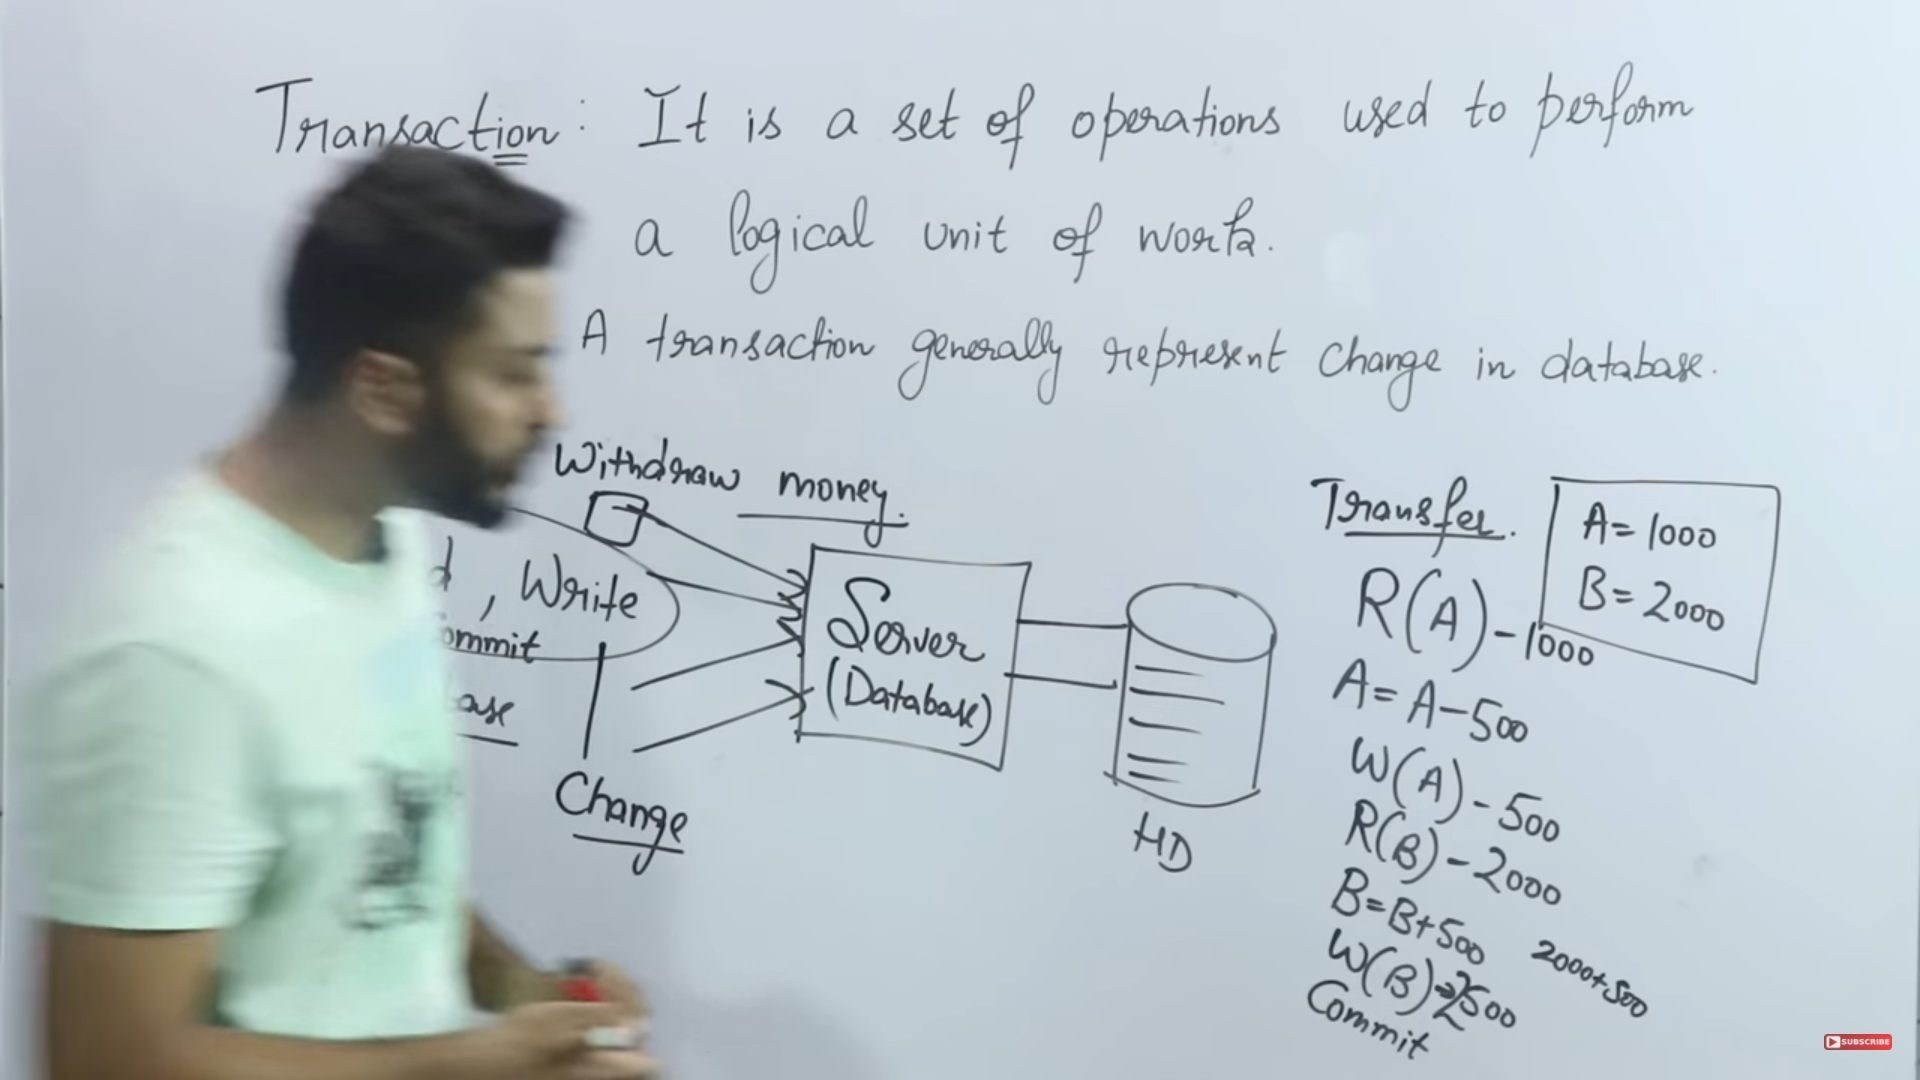 Transaction: It is a set of operations used to perform
a logical unit of work.
A transaction generally represent change in database.
Withdraw money.
, Write
Change
Server
(Database)
HD
Transfer.
A= 1000
B= 2000
R(A) - 1000
A= A-500
W(A) - 500
R(B) - 2000
B=B+500 2000+500
W(B)→2500
Commit
SUBSCRIBE